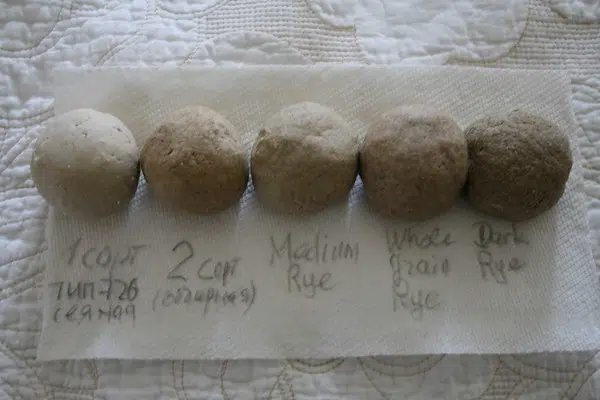 1 сорт
тип-726
сеяная
2 сорт
(обдирная)
Medium
Rye
Whole
grain
Rye
Dark
Rye